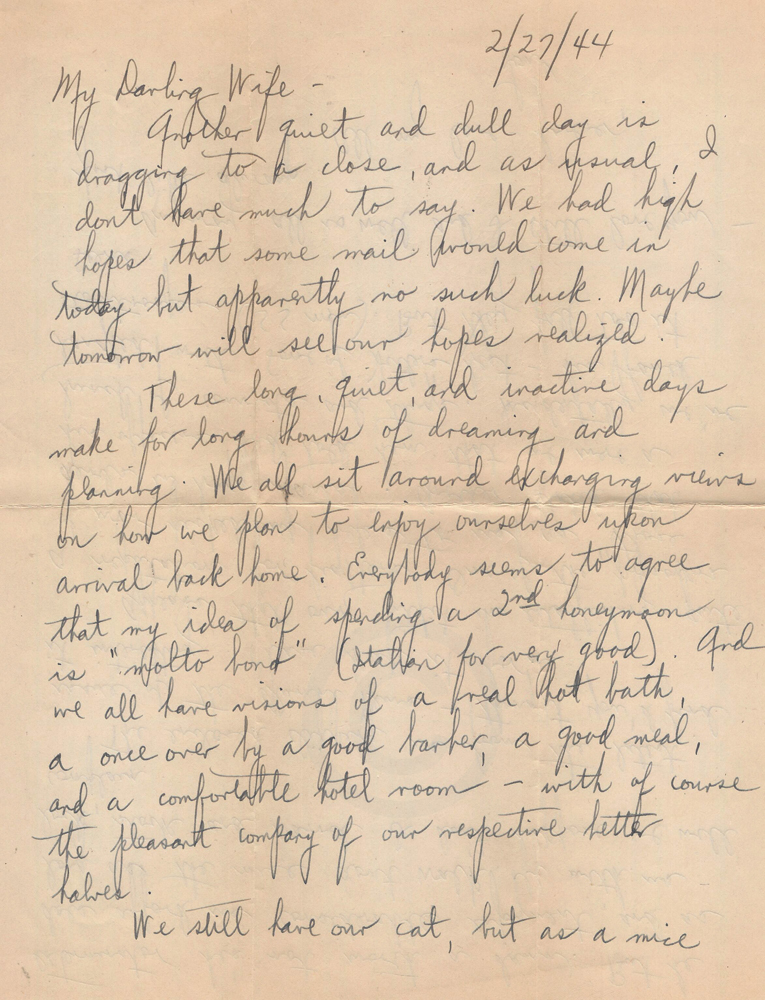 2/27/44
My Darling Wife -
Another quiet and dull day is
dragging to a close, and as usual, I
dont have much to say. We had high
hopes that some mail would come in
today but apparently no such luck. Maybe
tomorrow will see our hopes realized.
These long, quiet, and inactive days
make for long hours of dreaming and
planning. We all sit around exchanging views
on how we plan to enjoy ourselves upon
arrival back home. Everybody seems to agree
that my idea of spending a 2nd honeymoon
is "molto bono" (Italian for very good). And
we all have visions of a real hot bath,
a once over by a good barber, a good meal,
and a comfortable hotel room - with of course
the pleasant company of our respective better
halves.
We still have our cat, but as a mice